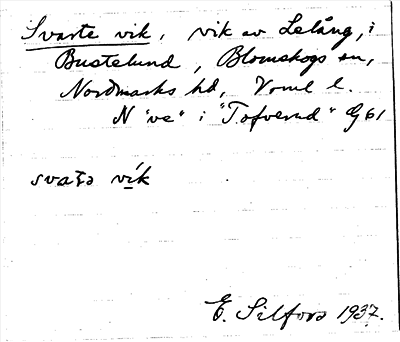 Svarte vik, vik av Lelång, i
Bustelund, Blomskogs sn,
Nordmarks hd, Vrml l.
N "ve" i "Tofverud" G61
svaʈə vík
E. Silfors 1937.